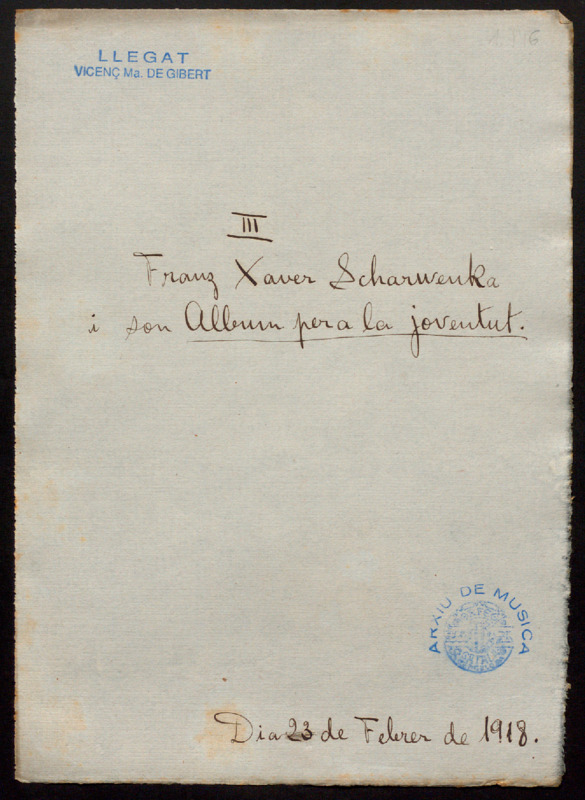 LLEGAT
VICENÇ Ma. DE GIBERT
III
Franz Xaver Scharwenka
i son Album pera la joventut.
ARXIU DE MUSICA
Dia 23 de Febrer de 1918.